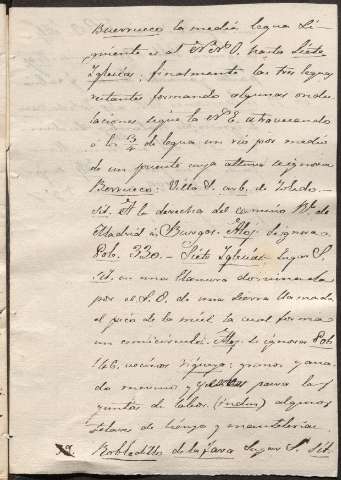 Berrueco la media legua si-
guiente es al N.N.O. hasta Siete
Iglesias, finalmente las tres leguas
restantes formando algunas ondu-
laciones sigue la N.E. atravesando
á los 3/4 de legua un rio por medio
de un puente cuya altura se ignora
Berrueco: Villa S. arb. de Toledo.-
Sit. A la derecha del camino Rl. de
Madrid á Burgos. Aloj. Se ignora.
Pob. 330.- Siete Iglesias Lugar S.
Sit. en una llanura dominada
por el S.O. de una sierra llamada
el pico de la miel la cual forma
un semicirculo. Aloj. se ignora Pob.
146 vecinos riqueza: granos y gana-
do merino y para las
yuntas de labor. (indus) algunos
telares de lienzo y manteleria.
Robledillo de la Jara Lugar S. Sit.